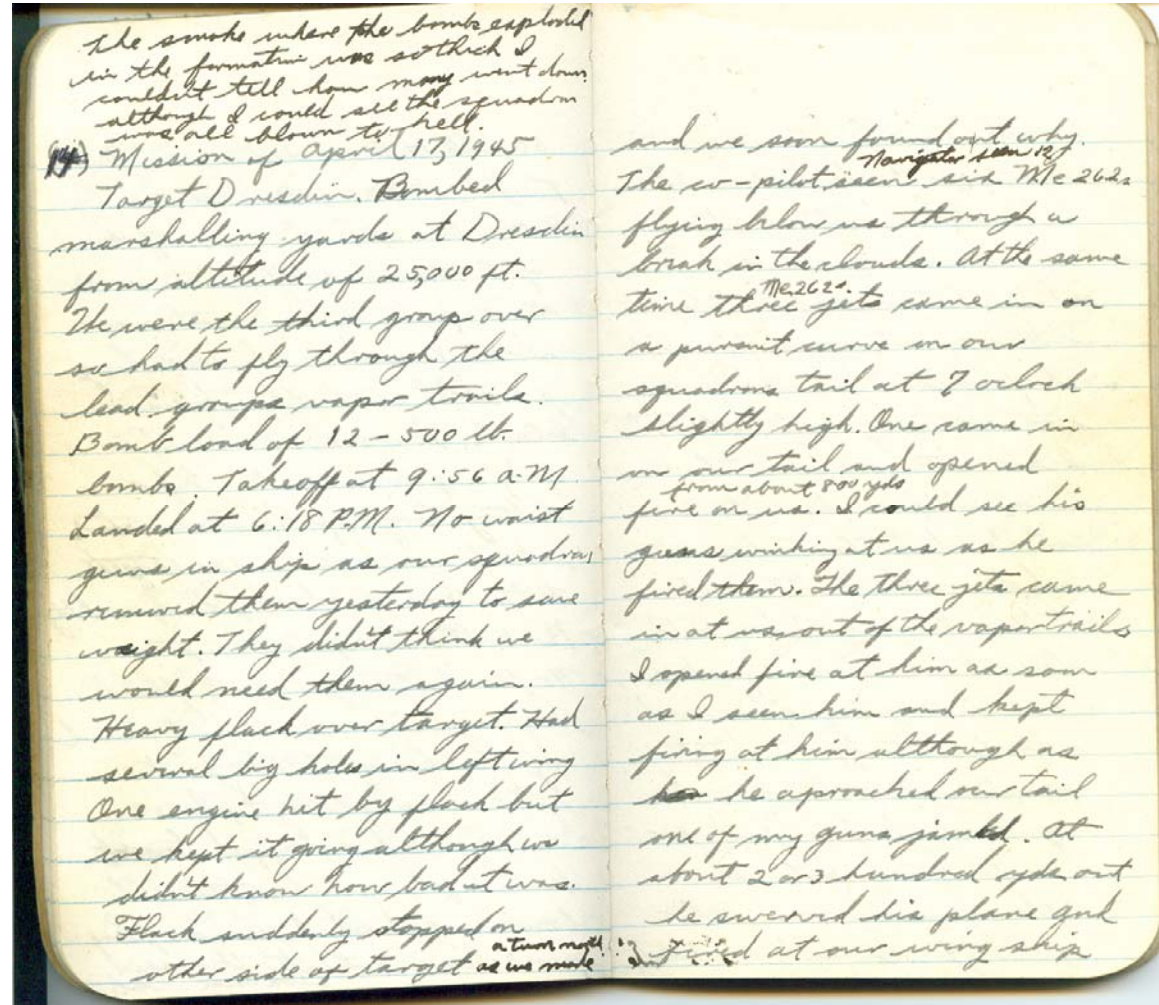 The smoke where the bombs exploded
in the formation was so thick I
couldn't tell how many went down
although I could see the squadron
was all blown to hell.
(14) Mission of April 17, 1945
Target Dresdin. Bombed
marshalling yards at Dresdin
from altitude of 25,000 ft.
We were the third group over
so had to fly through the
lead groups vapor trails.
Bomb load of 12-500 lb.
bombs. Takeoff at 9:56 A.M
Landed at 6:18 P.M. No waist
guns in ship as our squadron
removed them yesterday to save
weight. They didn't think we
would need them again.
Heavy flack over target. Had
several big holes in left wing
One engine hit by flack but
we kept it going although we
didn't know how bad it was.
Flack suddenly stopped on
a turn north
other side of target as we made
and we soon found out why.
Navigator seen 12
The co-pilot seen six Me 262s
flying below us through a
break in the clouds. At the same
Me 262s.
time three jets came in on
a pursuit curve on our
squadrons tail at 7 oclock
slightly high. One came in
on our tail and opened
from about 800 yds
fire on us. I could see his
guns winking at us as he
fired them. The three jets came
in at us out of the vapor trails
I opened fire at him as soon
as I seen him and kept
firing at him although as
he aproached our tail
one of my guns jamed. At
about 2 or 3 hundred yds out
he swerved his plane and
fired at our wing ship